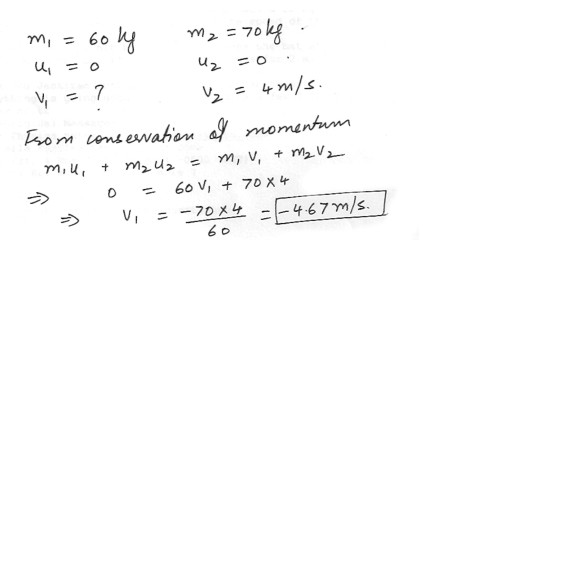 m₁ = 60 kg m₂ = 70 kg .
u₁ = 0 u₂ = 0 .
v₁ = ? v₂ = 4 m/s.
From conservation of momentum
m₁u₁ + m₂u₂ = m₁v₁ + m₂v₂
⇒ 0 = 60 v₁ + 70 × 4
⇒ v₁ = −70 × 4 / 60 = −4.67 m/s.